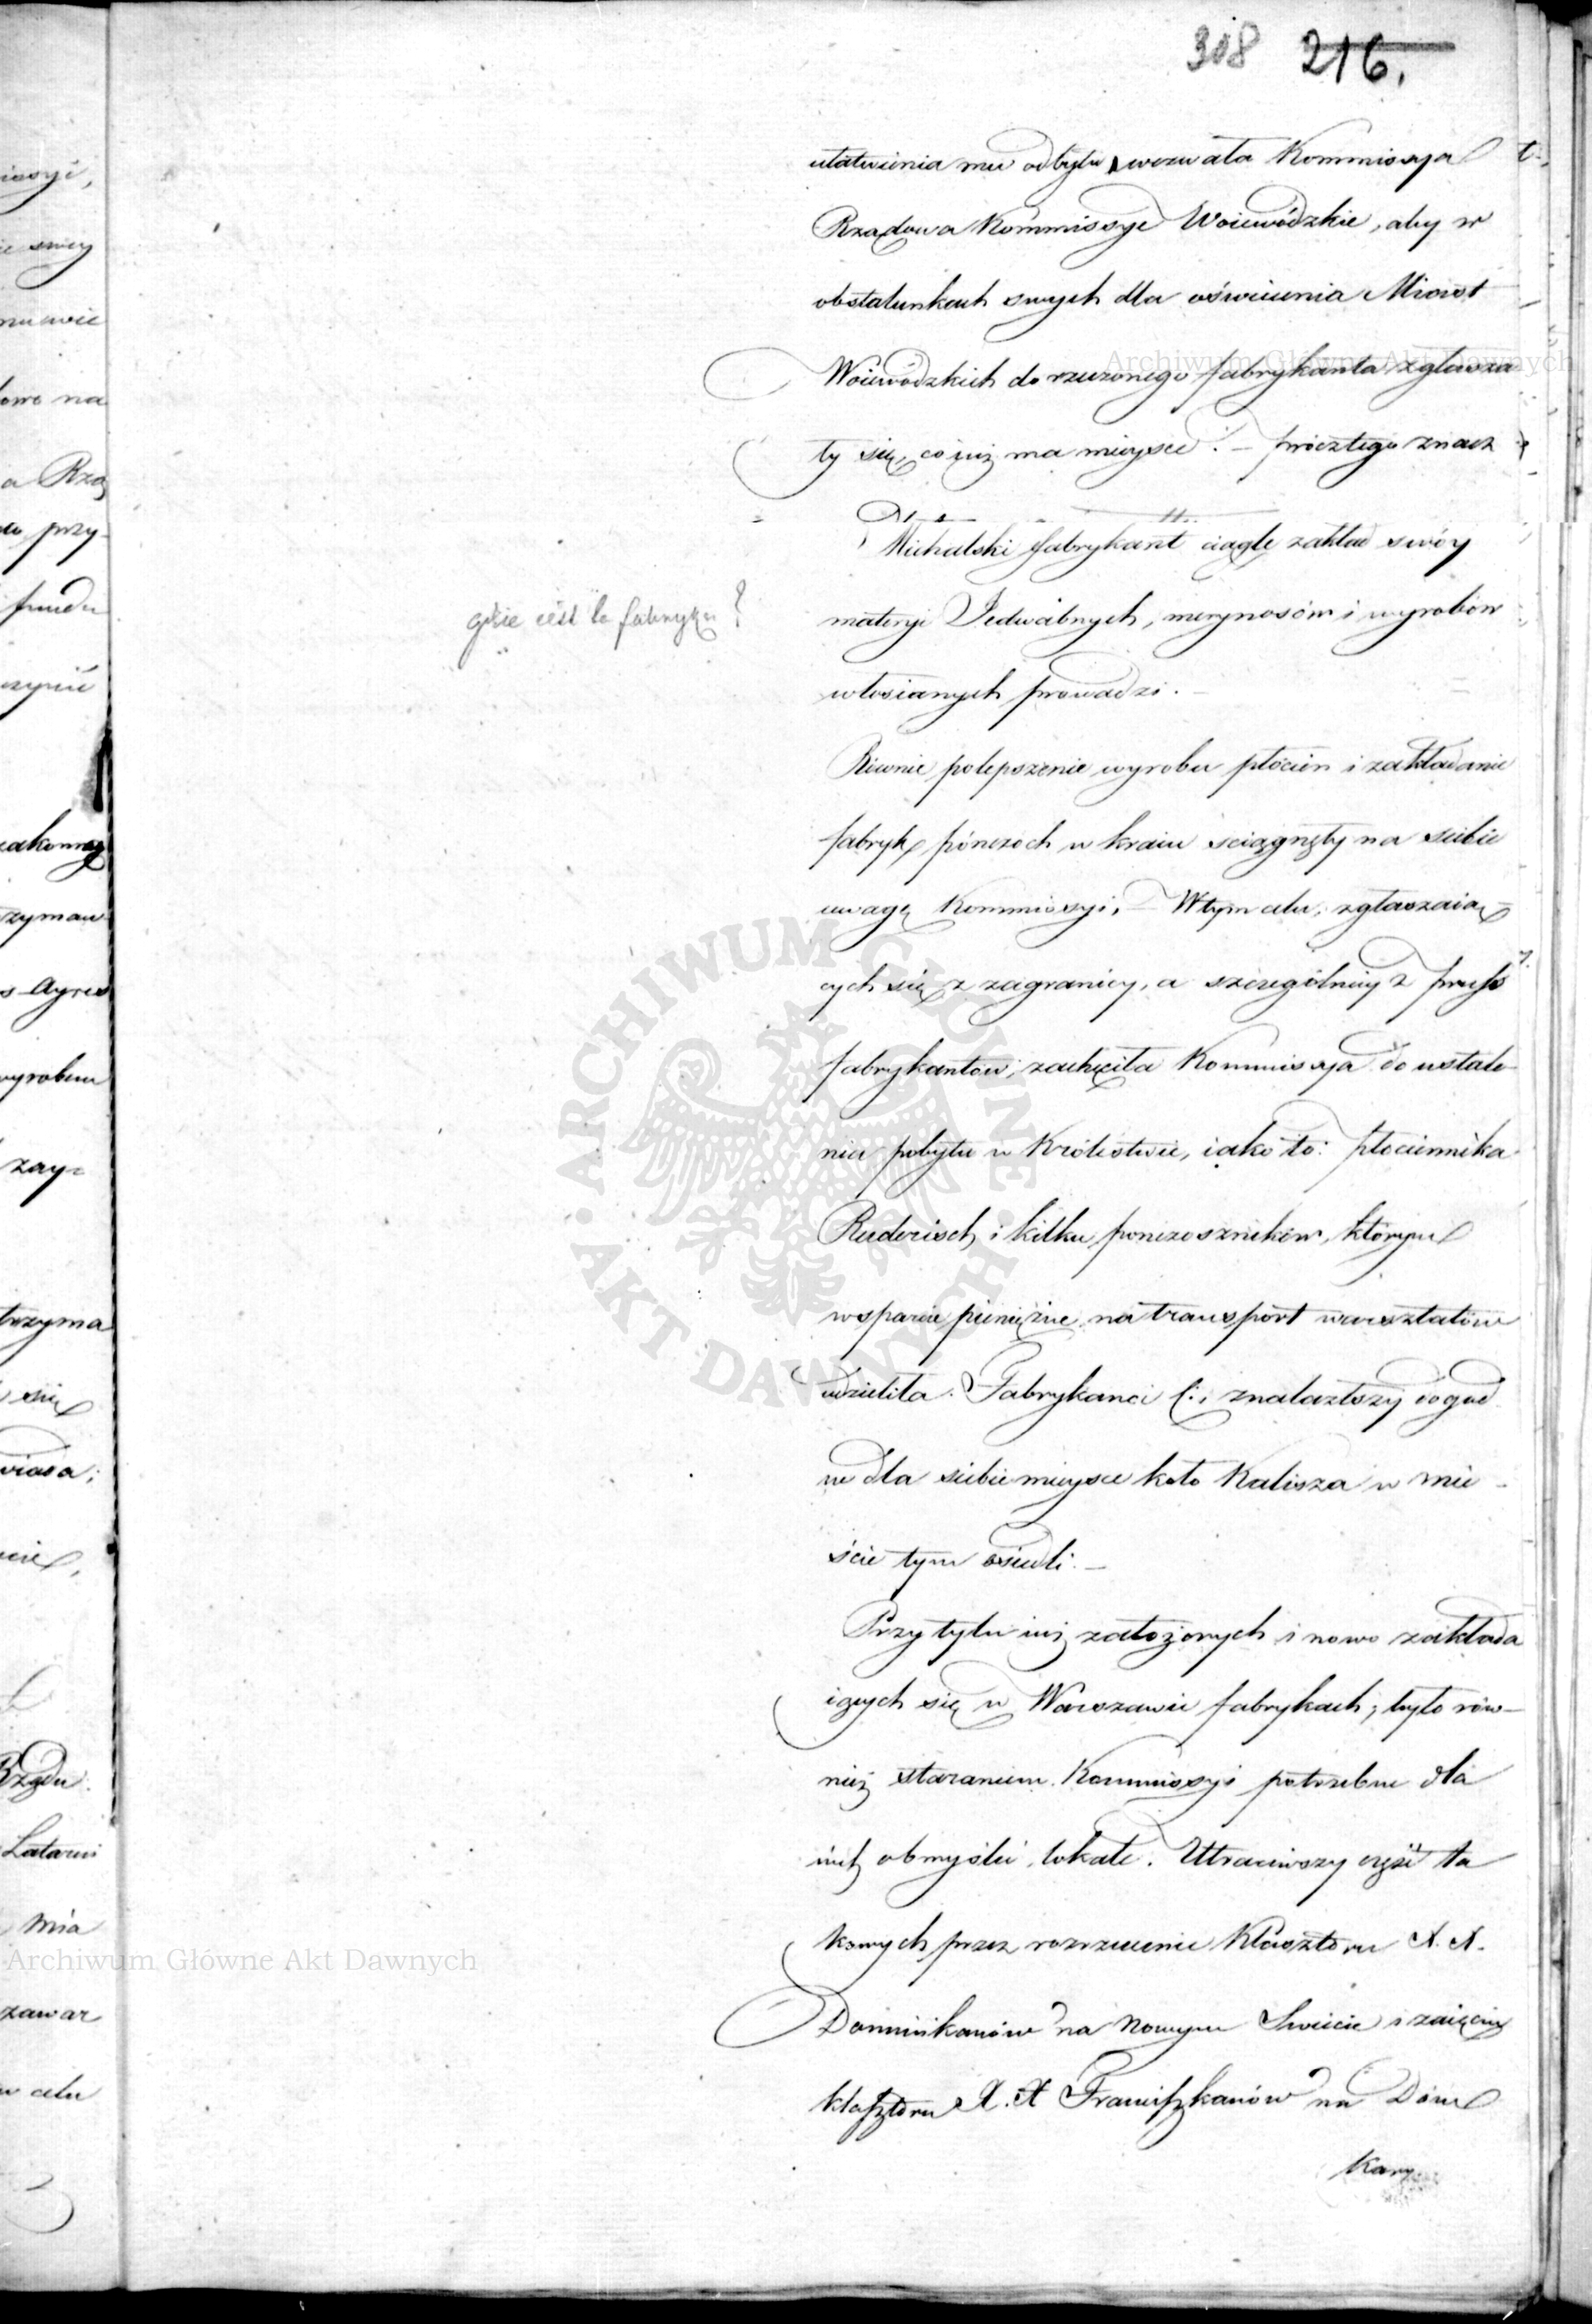 308 216.
ułatwienia mu odbytu wezwała Kommissya
Rządowa Kommissye Woiewódzkie, aby w
obstalunkach swych dla oświecenia Miast
Woiewódzkich do rzeczonego fabrykanta zgłasza
ły się, co iuż ma mieysce. – prócz tego znacz
Michalski fabrykant ciągle zakład swóy
gdzie iest ta fabryka?
materyi Jedwabnych, merynosów i wyrobów
włosianych prowadzi. –
Równie polepszenie wyrobu płócien i zakładanie
fabryk pónczoch w kraiu sciągnęły na siebie
uwagę Kommissyi, – W tym celu, zgłaszaią
cych się z zagranicy, a szczególniey z Pruss
fabrykantów, zachęciła Kommissya do ustale
nia pobytu w Królestwie, iako to: płociennika
Ruderisch i kilku ponczoszników, którym
wsparcie pieniężne na transport warsztatów
udzieliła. Fabrykanci ci, znalazłszy dogod
ne dla siebie mieysce koło Kalisza w mie –
ście tym osiedli. –
Przy tylu iuż założonych i nowo zakłada
iących się w Warszawie fabrykach, było rów –
nież staraniem Kommissyi potrzebne dla
nich obmyślić lokale. Utraciwszy część ta
kowych przez rozrzucenie Klasztoru X. X.
Dominikanów na Nowym Swiecie i zaięcie
klasztoru X. X Franciszkanów na Dóm
Kary
Archiwum Główne Akt Dawnych
ARCHIWUM GŁÓWNE · AKT DAWNYCH ·
Archiwum Główne Akt Dawnych